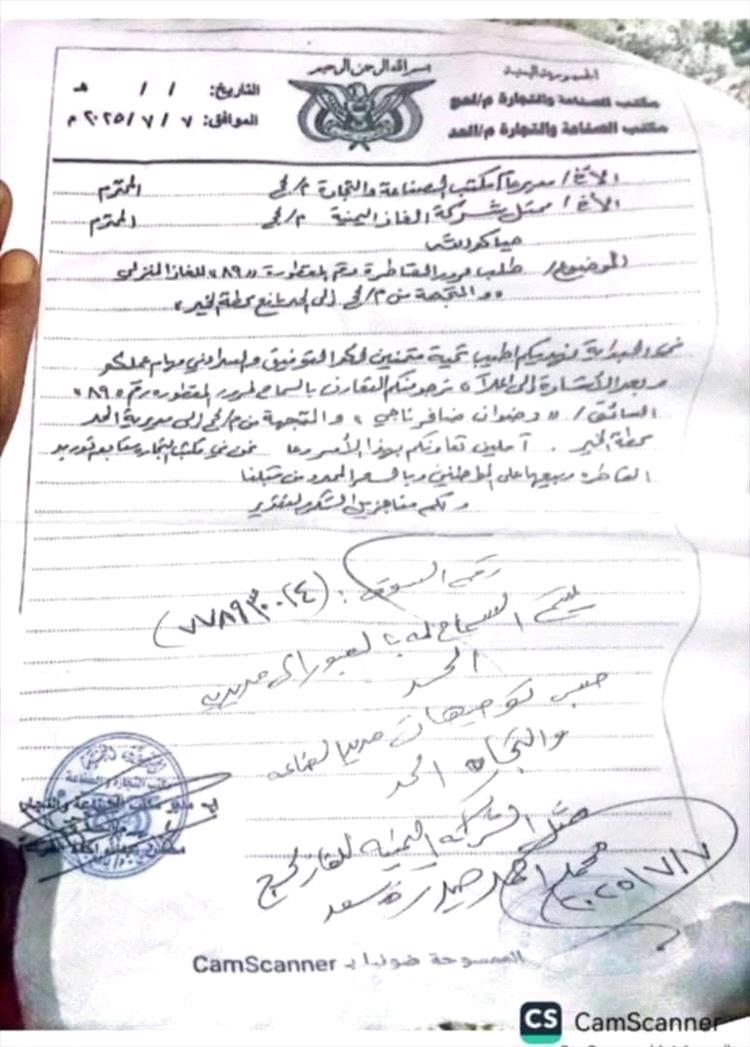 بسم الله الرحمن الرحيم
الجمهورية اليمنية
مكتب الصناعة والتجارة م/لحج
مكتب الصناعة والتجارة م/الحد
التاريخ: / / هـ
الموافق: ٧ / ٧ / ٢٠٢٥ م
الأخ/ مدير عام مكتب الصناعة والتجارة م/لحج المحترم
الأخ/ ممثل شركة الغاز اليمنية م/لحج المحترم
الموضوع/ طلب مرور القاطرة رقم المقطورة "٨٩" للغاز المنزلي
والمتجهة من م/لحج إلى الحد يافع محطة الخير"
في البداية نهديكم أطيب تحية متمنين لكم التوفيق والسداد في مهام عملكم
وبعد الأشارة إلى اعلاه نرجو منكم التعاون بالسماح لمرور المقطورة رقم "٨٩"
السائق/ " رضوان ناجي " والمتجهة من م/لحج إلى مديرية الحد
محطة الخير . آملين تعاونكم بهذا الأمر نحن في مكتب التجارة توريد
القاطرة وبيعها على المواطنين وبالسعر المحدد من قبلنا
ولكم منا جزيل الشكر والتقدير
رقم السوق :
يتم السماح له بالعبور الى مديرية
الحد
حسب توجيهات مدير الصناعه
والتجاره الحد
ممثل الشركة اليمنية للغاز لحج
محمد احمد حيدرة سعد
٢٠٢٥/٧/٧
مكتب التجارة والصناعة
الممسوحة ضوئيا بـ CamScanner
CS CamScanner